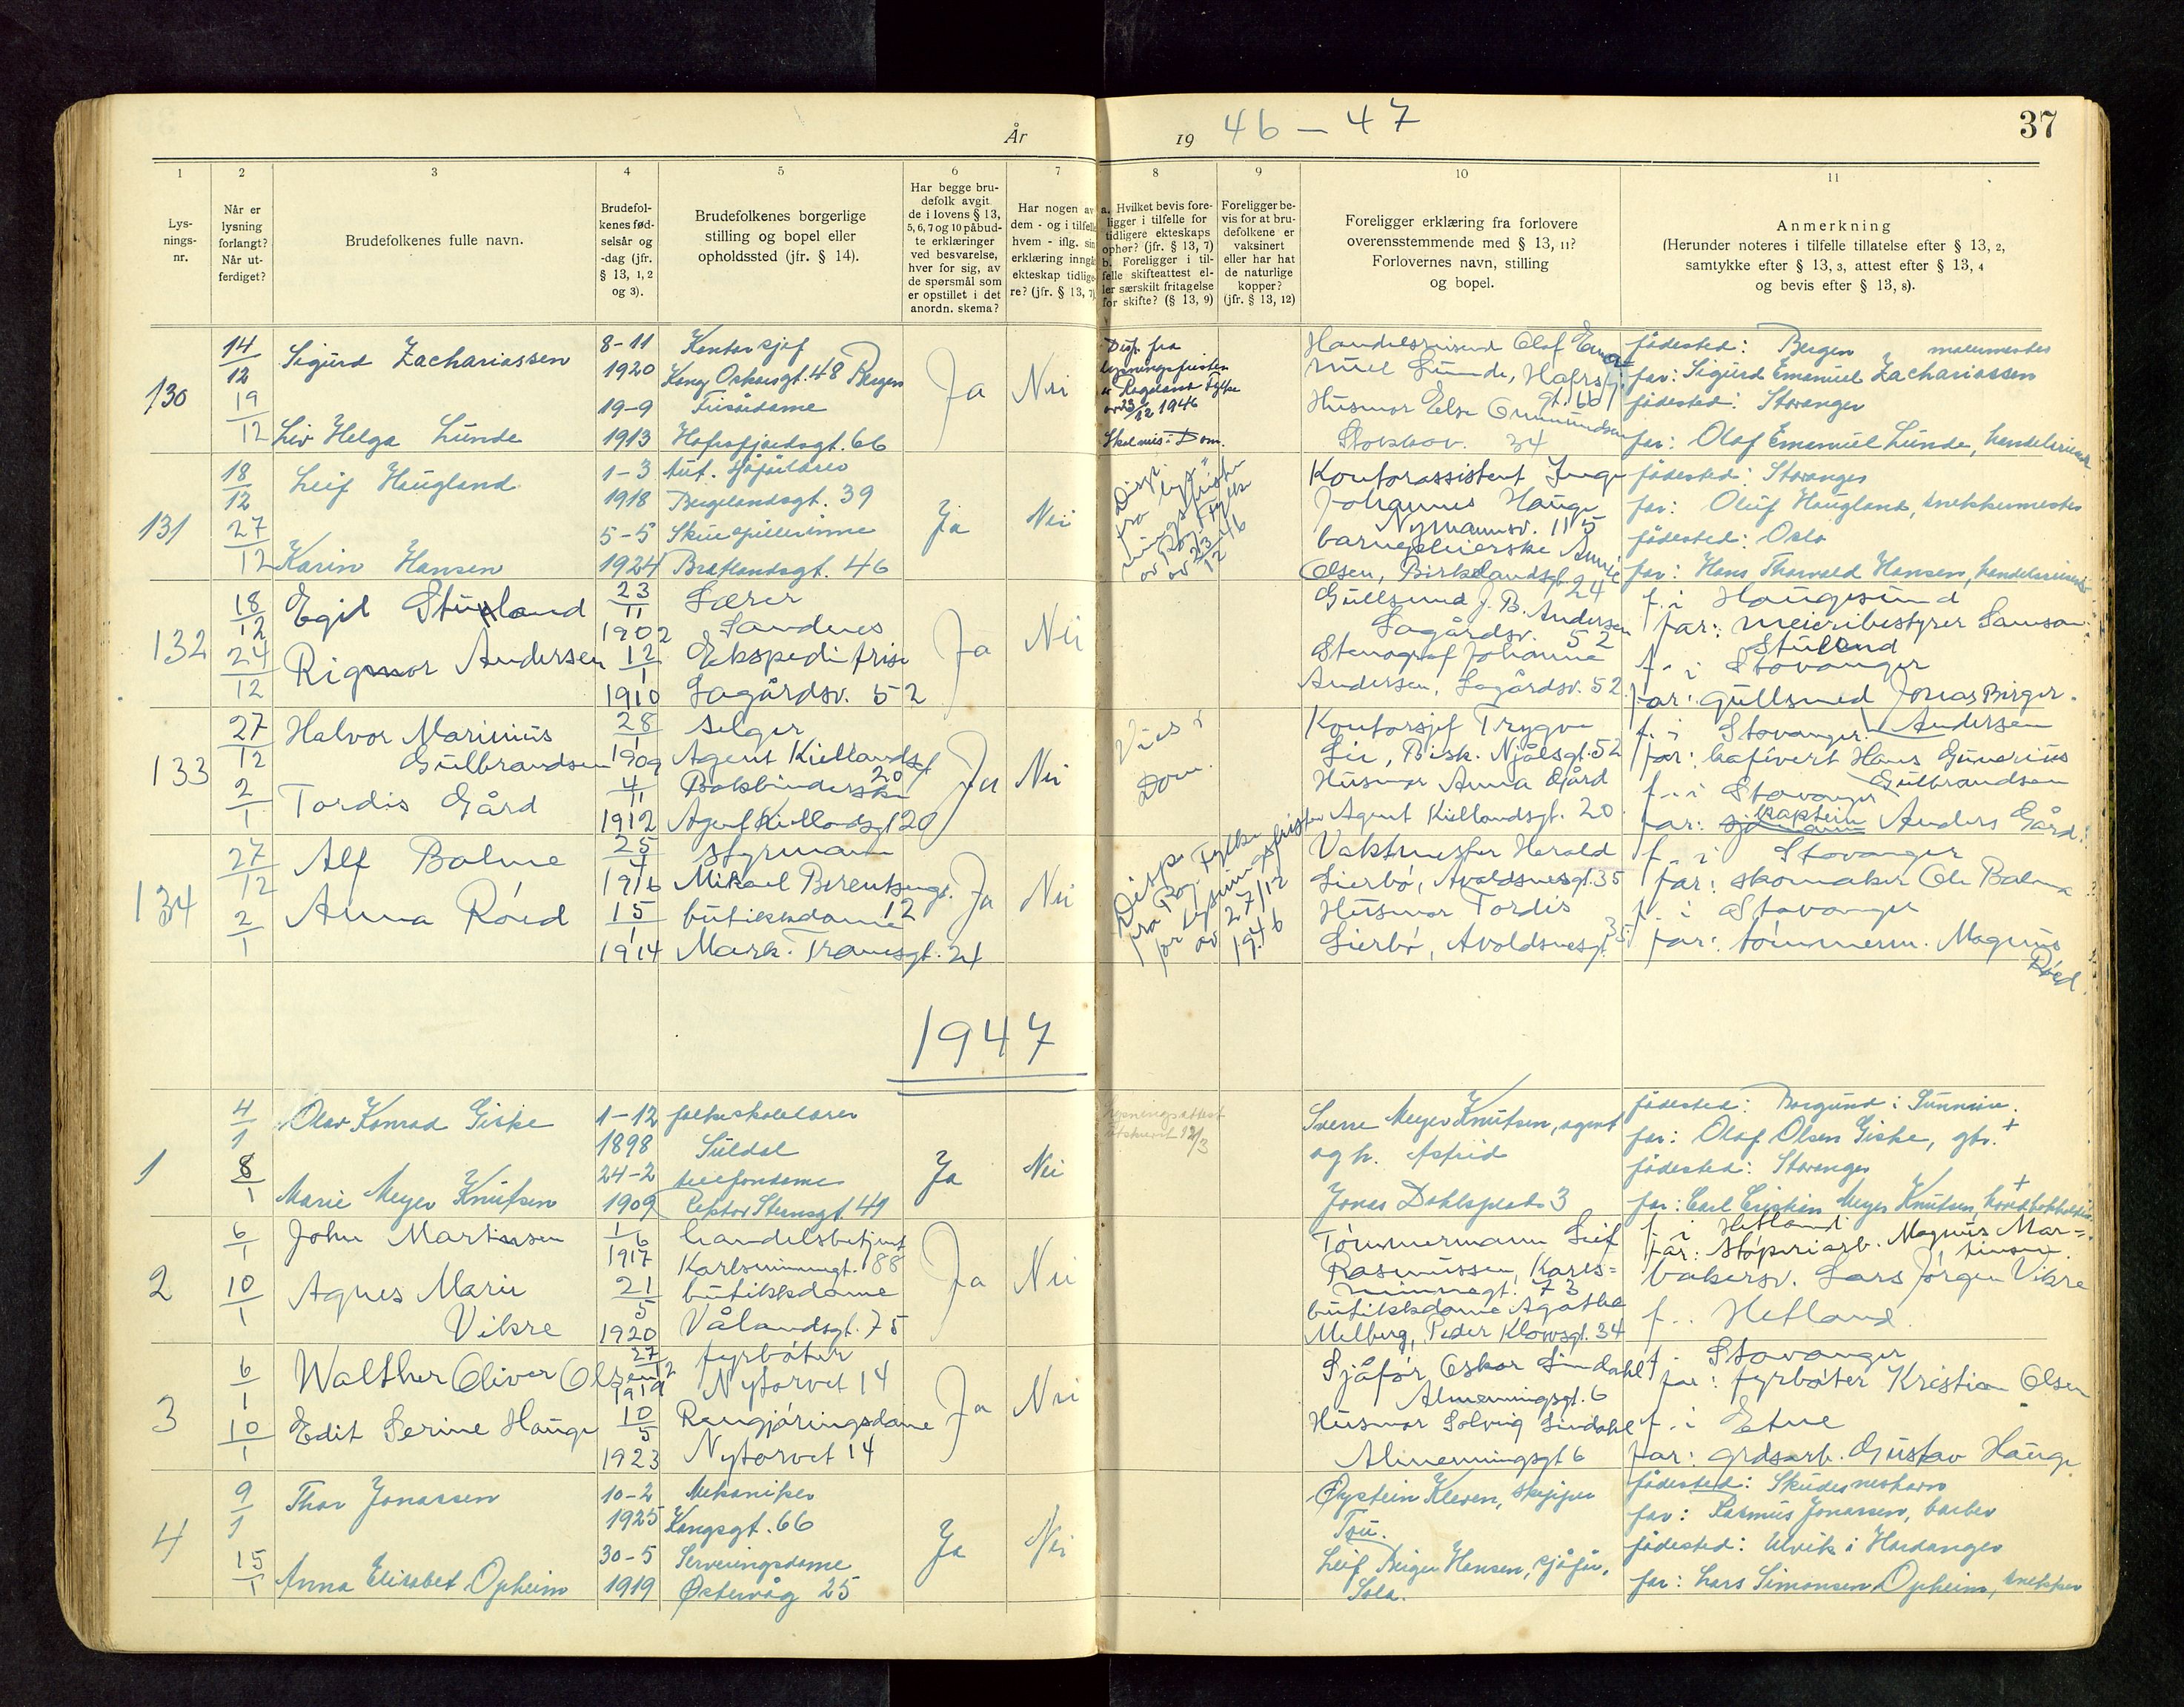 År 19 46 – 47
37
1 2 3 4 5 6 7 8 9 10 11
Lys-
nings-
nr.
Når er
lysning
forlangt?
Når ut-
ferdiget?
Brudefolkenes fulle navn.
Brudefol-
kenes fød-
selsår og
-dag (jfr.
§ 13, 1, 2
og 3).
Brudefolkenes borgerlige
stilling og bopel eller
opholdssted (jfr. § 14).
Har begge bru-
defolk avgit
de i lovens § 13,
5, 6, 7 og 10 påbud-
te erklæringer
ved besvarelse,
hver for sig, av
de spørsmål som
er opstillet i det
anordn. skema?
Har nogen av
dem - og i tilfelle
hvem - iflg. sin
erklæring inngå
ekteskap tidlige-
re? (jfr. § 13, 7)
a. Hvilket bevis fore-
ligger i tilfelle for
tidligere ekteskaps
ophør? (jfr. § 13, 7)
b. Foreligger i til-
felle skifteattest el-
ler særskilt fritagelse
for skifte? (§ 13, 9)
Foreligger be-
vis for at bru-
defolkene er
vaksinert
eller har hat
de naturlige
kopper?
(jfr. § 13, 12)
Foreligger erklæring fra forlovere
overensstemmende med § 13, 11?
Forlovernes navn, stilling
og bopel.
Anmerkning
(Herunder noteres i tilfelle tillatelse efter § 13, 2,
samtykke efter § 13, 3, attest efter § 13, 4
og bevis efter § 13, 8).
130
14/12
19/12
Sigurd Zachariassen
Liv Helga Lunde
8-11
1920
19-9
1913
Kontorsjef
Kong Oskarsgt. 48 Bergen
Frisørdame
Hafrsfjordsgt. 66
Ja
Nei
Disp. fra
lysningsfristen
Rogaland Fylke
av 23/12 1946
Skal vies i Dom.
Handelsreisend Olaf Ema
nuel Lunde, Hafrsfj.
gt. 66
Husmor Else Gummundsen
34
fødested: Bergen malermester
far: Sigurd Emanuel Zachariassen
fødested: Stavanger
far: Olaf Emanuel Lunde, handelsreisende
131
18/12
27/12
Leif Haugland
Karin Hansen
1-3
1918
5-5
1924
Aut.
Bergelandsgt. 39
Skuespillerinne
Bratlandsgt. 46
Ja
Nei
Disp.
fra lys-
ningsfristen
av Rog. Fylke
av 23/12 46
Kontorassistent Inge
Johannes Hauge
Nymannsv. 115
barnepleierske Annie
Olsen, Birkelandsgt. 24
fødested: Stavanger
far: Oluf Haugland, snekkermester
fødested: Oslo
far: Hans Thorvald Hansen, handelsreisende
132
18/12
24/12
Egil Stueland
Rigmor Andersen
23/11
1902
12/1
1910
Lærer
Sandnes
Ekspeditrise
Lagårdsv. 52
Ja
Nei
Gullsmed J. B. Andersen
Lagårdsv. 52
Stenograf Johanne
Andersen, Lagårdsv. 52
f. i Haugesund
far: meieribestyrer Samson
Stueland
f. i Stavanger
far: gullsmed Jonas Birger
Andersen
133
27/12
2/1
Halvor Marinius
Gulbrandsen
Tordis Gård
28/1
1909
4/11
1912
Selger
Agent Kiellandsgt
20
Bokbinderske
Agent Kiellandsgt 20
Ja
Nei
Vies i
Dom.
Kontorsjef Trygve
Lie, Bisk. Njålsgt. 52
Husmor Anna Gård
Agent Kiellandsgt. 20
f. i Stavanger
far: kafévert Hans Gunerius
Gulbrandsen
f. i Stavanger
far: sjømann kaptein Anders Gård.
134
27/12
2/1
Alf Balme
Anna Röed
25/4
1916
15/1
1914
Styrmann
Mikael Berentsengt.
12
butikkdame
Mark. Tranesgt. 21
Ja
Nei
Disp.
fra Rog. Fylke
for lysningsfristen
av 27/12
1946
Vaktmester Harald
Lierbö, Avaldsnesgt. 35
Husmor Tordis
Lierbö, Avaldsnesgt. 35
f. i Stavanger
far: skomaker Ole Balme
f. i Stavanger
far: tömmerm. Magnus
Röed
1947
1
4/1
8/1
Olav Konrad Giske
Marie Meyer Knutsen
1-12
1898
24-2
1909
folkeskolelærer
Suldal
telefondame
Lektor Steensgt. 41
Ja
Nei
Lysningsattest
utskrevet 12/3
Sverre Meyer Knutsen, agent
og h. Astrid
Jonas Dahlsplads 3
fødested: Borgund i Sunnmøre.
far: Olaf Olsen Giske, gbr. +
fødested: Stavanger
far: Carl Cristian Meyer Knutsen, hovedbokholder +
2
6/1
10/1
John Martinsen
Agnes Marie
Vikre
1/6
1917
21/5
1920
handelsbetjent
Karlsminnegt. 88
butikkdame
Vålandsgt. 75
Ja
Nei
Tömmermann Leif
Rasmussen, Karls=
minnegt. 73
butikkdame Agathe
Melberg, Peder Klowsgt. 34
f. i Hetland
far: støperiarb. Magnus Mar=
tinsen.
bakersv. Lars Jörgen Vikre
f. . Hetland.
3
6/1
10/1
Walther Oliver Olsen
Edit Serine Hauge
27/12
1919
10/5
1923
fyrböter
Nytorvet 14
Rengjöringsdame
Nytorvet 14
Ja
Nei
Sjåför Oskar Lindahl
Almenningsgt. 6
Husmor Solveig Lindahl
Almenningsgt 6
f. Stavanger
far: fyrböter Kristian Olsen
f. i Etne
far: grdsarb. Gustav Hauge
4
9/1
15/1
Thor Jonassen
Anna Elisabet Opheim
10-2
1925
30-5
1919
Mekaniker
Kongsgt. 66
Serveringsdame
Østervåg 25
Ja
Nei
Øystein Kleven, skipper
Tau.
Leif Birger Hansen, sjåfør,
Sola.
fødested: Skudeneshavn
far: Rasmus Jonassen, barber
fødested: Ulvik i Hardanger
far: Lars Simonsen Opheim, snekker